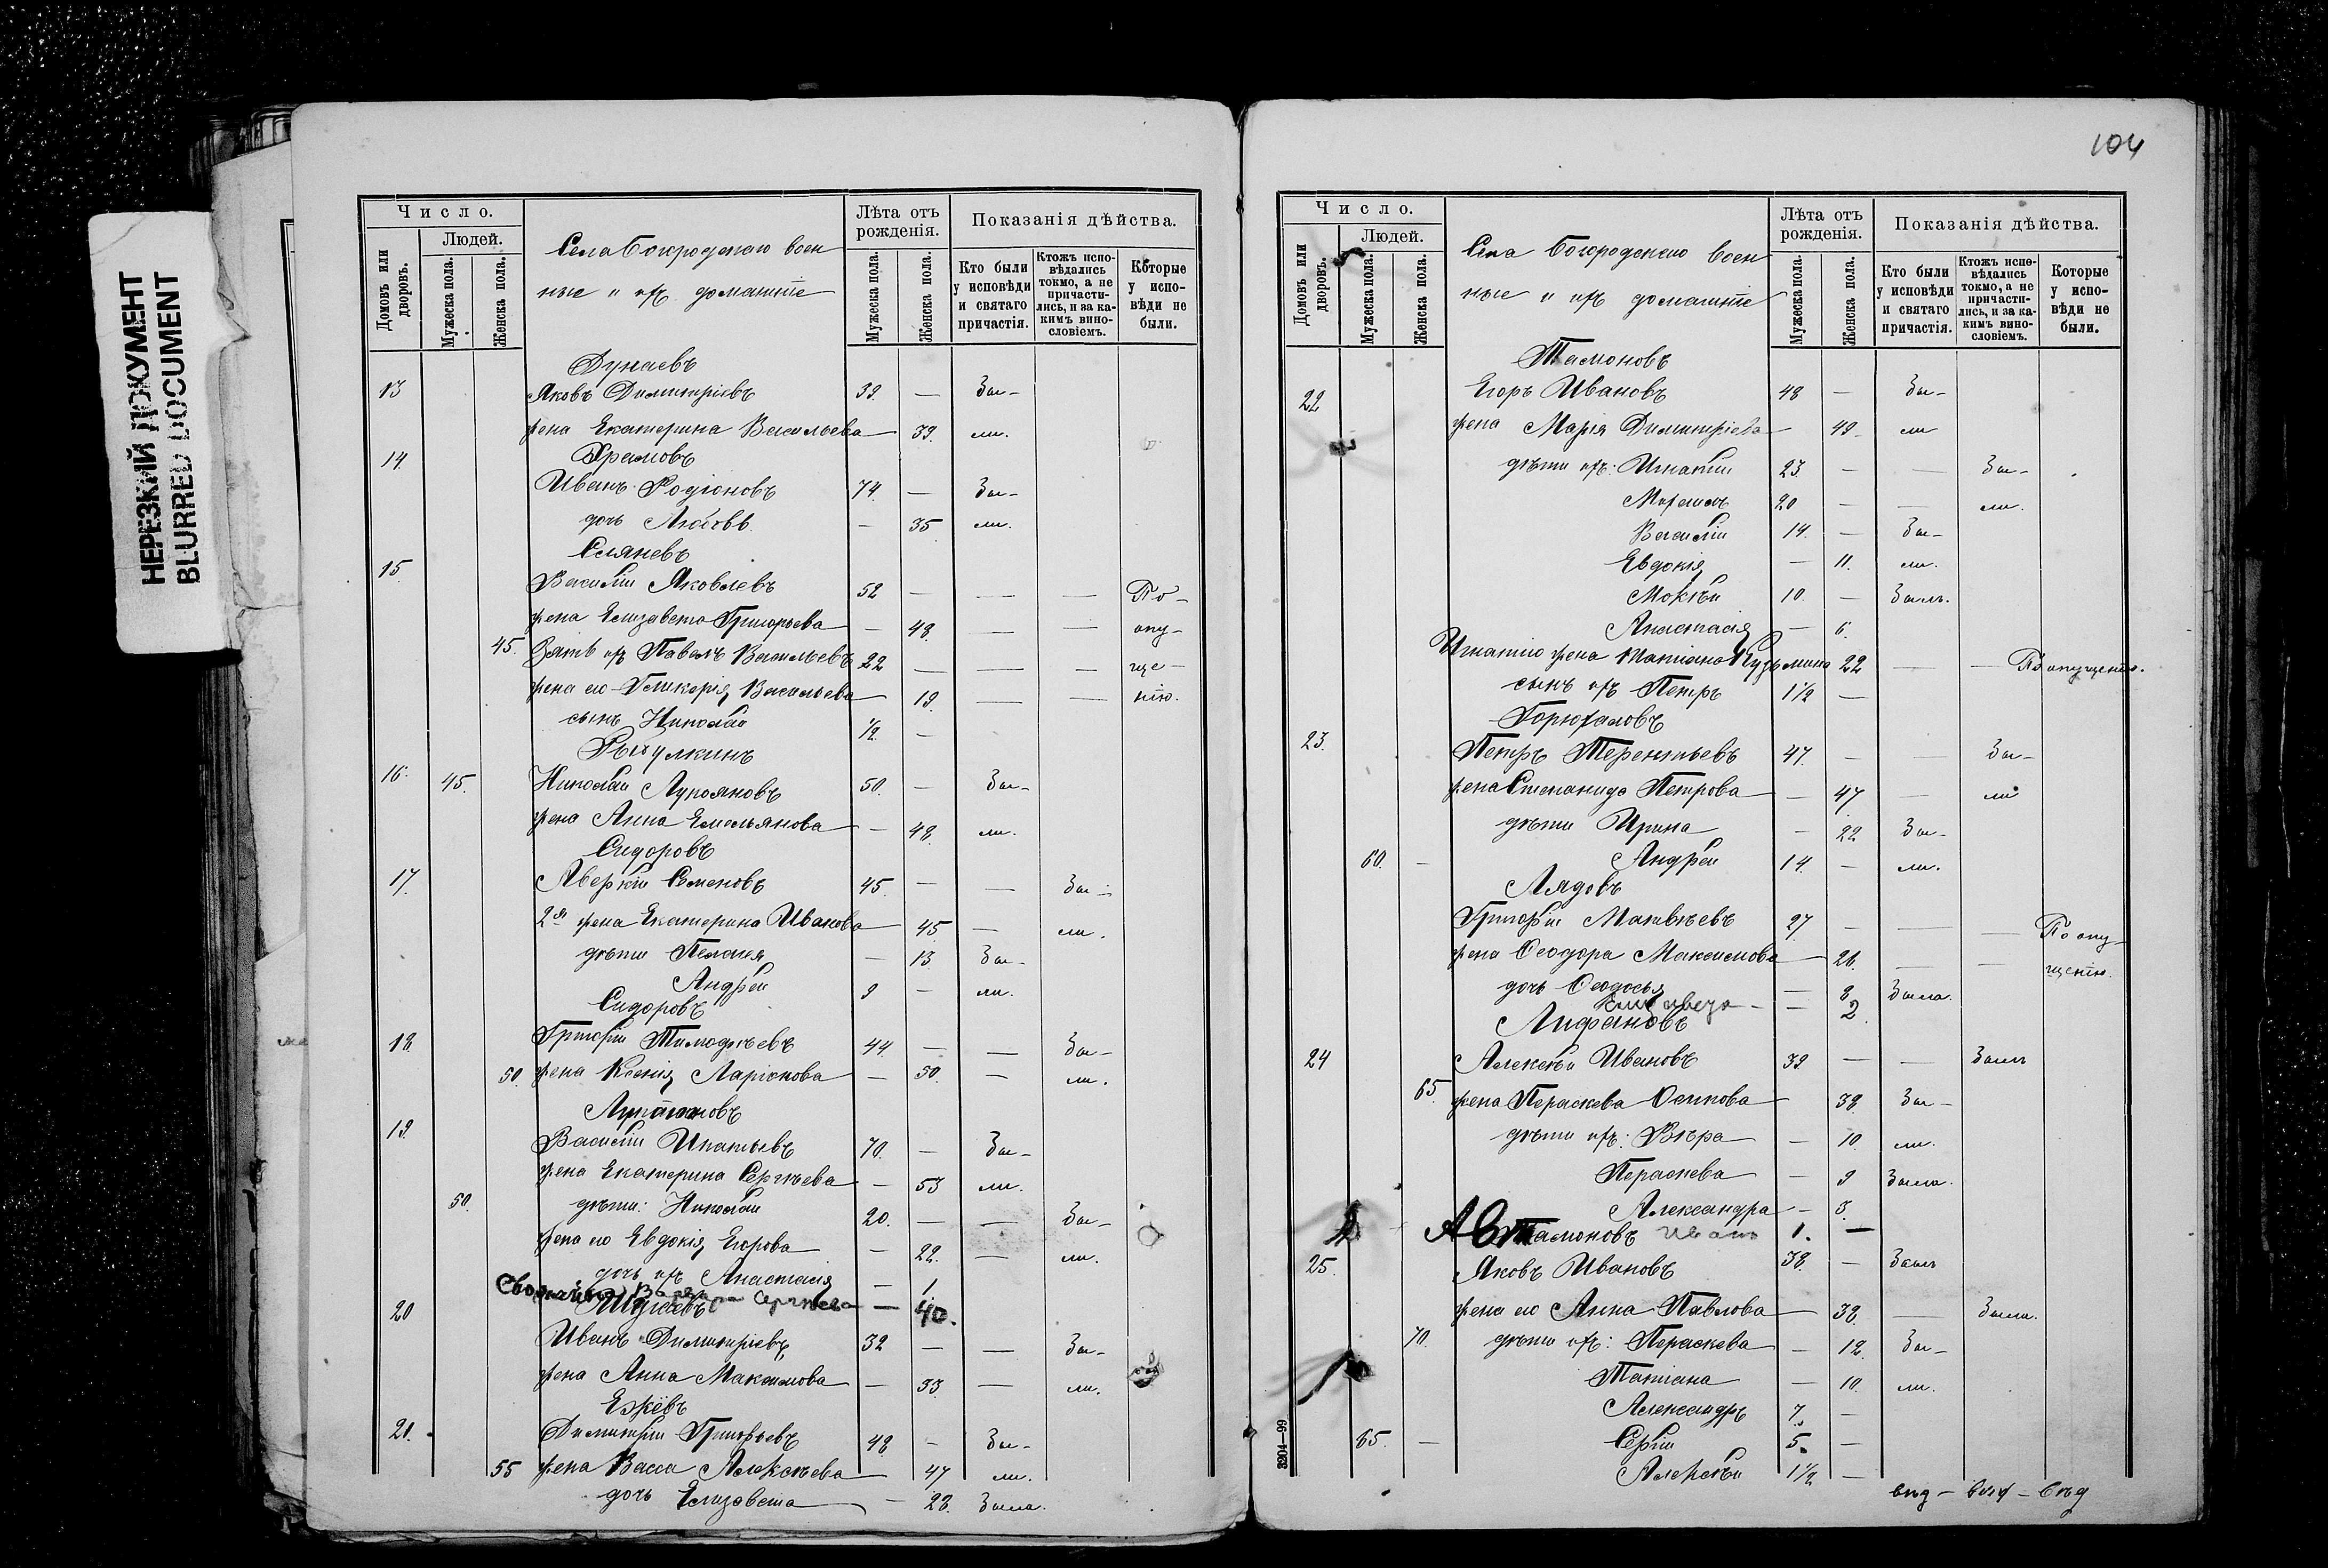 НЕРЕЗКИЙ ДОКУМЕНТ
BLURRED DOCUMENT
Число.
Людей.
Домовъ или дворовъ.
Мужеска пола.
Женска пола.
Села Богородскаго воен
ные и ихъ домашніе
Лѣта отъ рожденія.
Мужеска пола.
Женска пола.
Показанія дѣйства.
Кто были у исповѣди и святаго причастія.
Ктожъ исповѣдались токмо, а не причастились, и за какимъ винословіемъ.
Которые у исповѣди не были.
Дунаевъ
13 Яковъ Димитріевъ 39. — Бы-
жена Екатерина Васильева — 39. ли.
14. Храмовъ
Иванъ Родіоновъ 74. — Бы-
дочь Любовь — 35 ли.
15.
Василій Яковлевъ 52 — — — По-
жена Елизавета Григорьева — 48. — — опу-
45. Зять ихъ Павелъ Васильевъ 22 — — — ще-
жена его Гликерія Васильева 19. — — нію.
сынъ Николай 1/2 —
16. 45. Николай Лукояновъ 50. — Бы-
жена Анна Емельянова — 48. ли.
Сидоровъ
17. Аверкій Семеновъ 45. — — Бы-
2я жена Екатерина Иванова 45. — ли.
дѣти Пелагея — 13. Бы-
Андрей 9 — ли.
Сидоровъ
18. Григорій Тимофѣевъ 44. — — Бы-
50. жена Ксенія Ларіонова — 50. — ли.
19. Василій Игнатьевъ 70. — Бы-
жена Екатерина Сергѣева — 53 ли.
50. дѣти: Николай 20. — — Бы-
жена его Евдокія Егорова — 22. — ли.
дочь ихъ Анастасія — 1.
Сергѣева — 40.
20
Иванъ Димитріевъ 32 — — Бы-
жена Анна Максимова — 33. — ли.
Ежевъ
21. Димитрій Григорьевъ 48 — Бы-
55 жена Васса Алексѣева 47 ли.
дочь Елизавета — 28. Была.
104
Число.
Людей.
Домовъ или дворовъ.
Мужеска пола.
Женска пола.
Села Богородскаго воен
ные и ихъ домашніе
Лѣта отъ рожденія.
Мужеска пола.
Женска пола.
Показанія дѣйства.
Кто были у исповѣди и святаго причастія.
Ктожъ исповѣдались токмо, а не причастились, и за какимъ винословіемъ.
Которые у исповѣди не были.
Тамоновъ
22 Егоръ Ивановъ 48 — Бы-
жена Марія Димитріева 49 ли
дѣти ихъ: Игнатій 23. — — Бы-
20 — — ли.
Василій 14. — Бы-
Евдокія — 11. ли.
Мокѣй 10. — Былъ.
Анастасія — 6.
Игнатію жена Татіана Кузьмина 22 — — По опущенію.
сынъ ихъ Петръ 1 1/2 —
23. Петръ Терентьевъ 47. — — Бы-
жена Степанида Петрова — 47. — ли
дѣти Ирина — 22 Бы-
60. — Андрей 14. — ли.
Лядовъ
Григорій Матвѣевъ 27. — — — По опу-
жена Ѳеодора Максимова — 26. — — щенію.
дочь Ѳеодосья — 8 Была.
Елизавета — — 2
Лифановъ
24 Алексѣй Ивановъ 39 — — Былъ
65. жена Параскева Осипова 38. Бы-
дѣти ихъ: Вѣра — 10. ли.
Параскева — 9 Была.
Александра — 3.
Автамоновъ Иванъ 1. —
25. Яковъ Ивановъ 38. — Былъ
жена его Анна Павлова 38. — Была.
70. дѣти ихъ: Параскева — 12. Бы-
Татіана — 10. ли.
Александръ 7. —
65. — Сергій 5. —
Алексѣй 1 1/2 —
3204—99